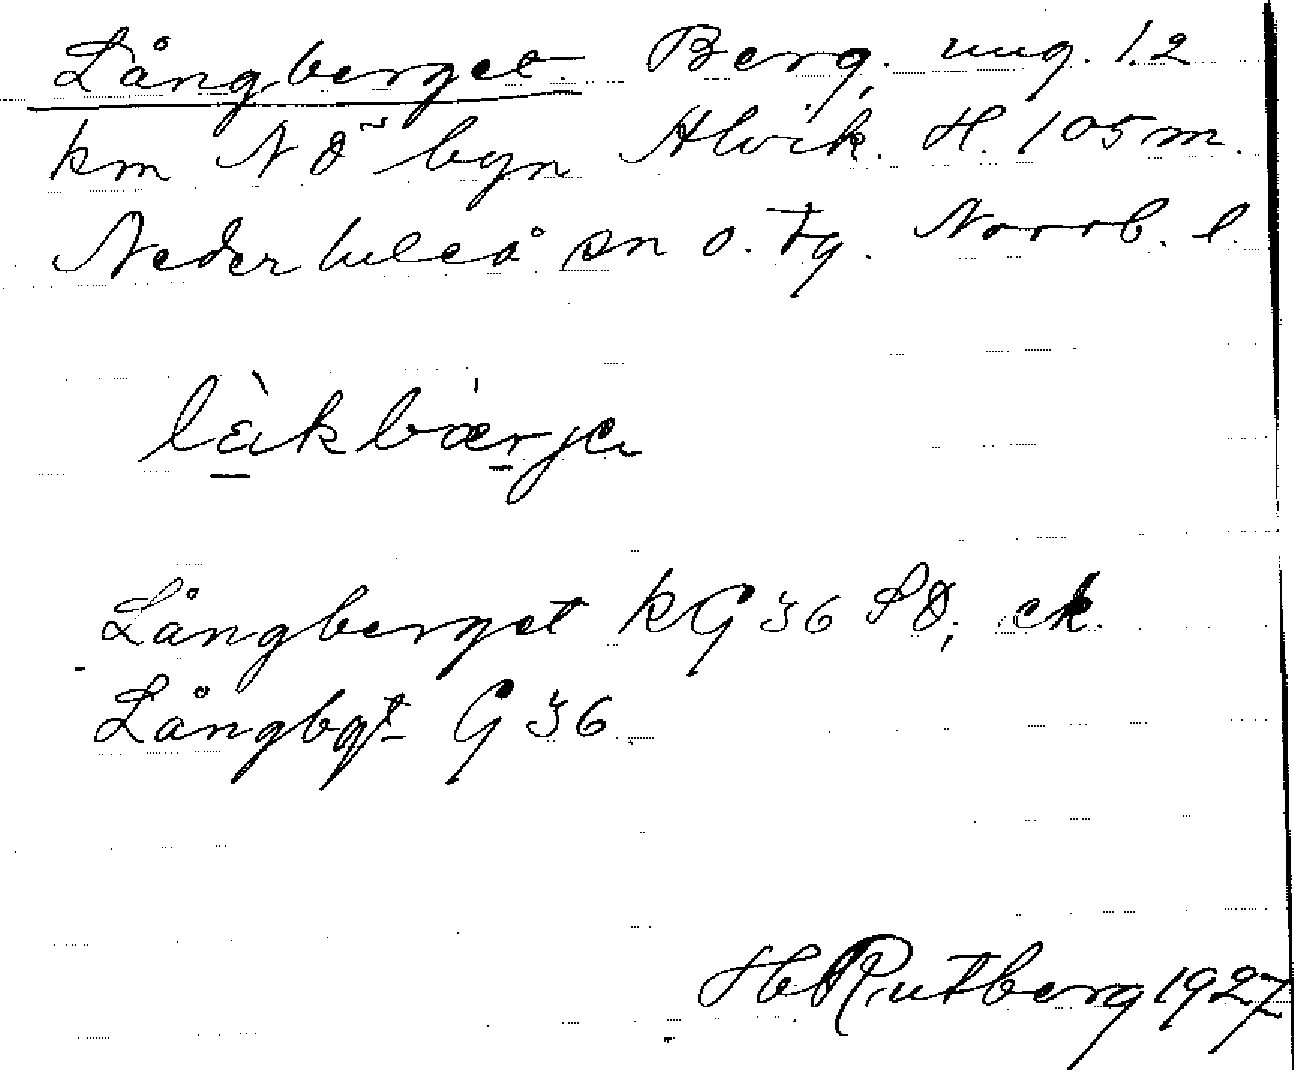 Långberget. Berg, ung. 1.2
km NÖ byn Alvik. H. 105 m.
Nederluleå sn o. tg. Norrb. l.
làkbærje
Långberget kG 36 SÖ; ek.
Långbgt G 36
HRutberg 1927